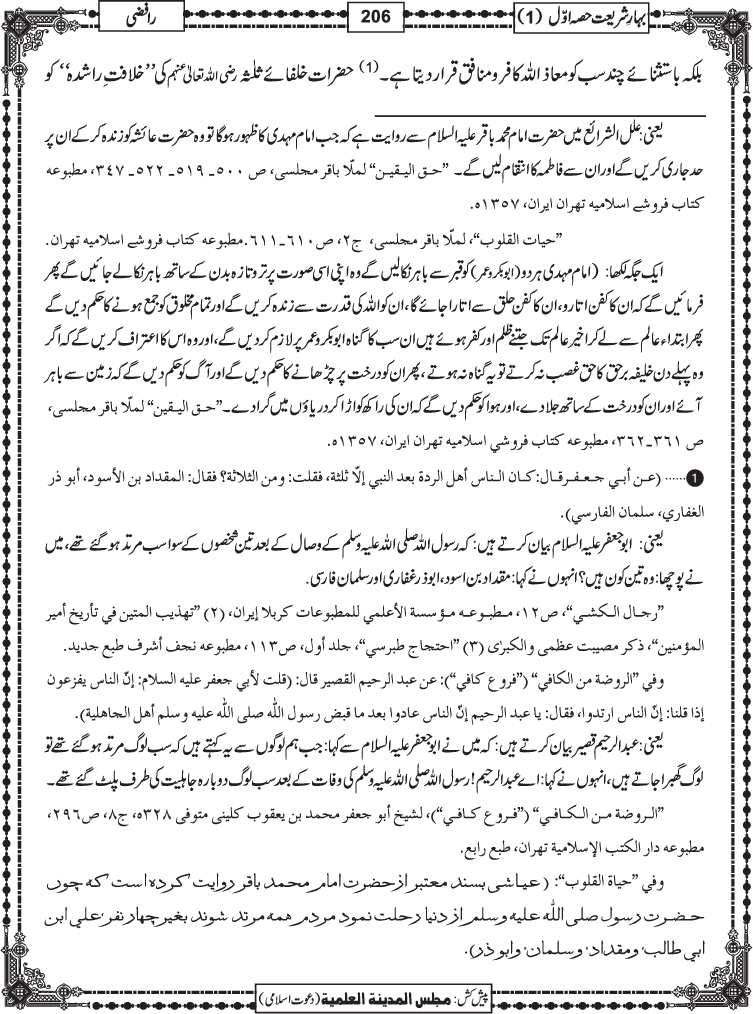 بہارِ شریعت حصہ اوّل (1)
206
رافضی
بلکہ باستثنائے چند سب کو معاذ اللہ کافر و منافق قرار دیتا ہے۔(1) حضرات خلفائے ثلٰثہ رضی اللہ تعالیٰ عنہم کی ’’خلافتِ راشدہ‘‘ کو
یعنی: علل الشرائع میں حضرت امام محمد باقر علیہ السلام سے روایت ہے کہ جب امام مہدی کا ظہور ہوگا تو وہ حضرت عائشہ کو زندہ کرکے ان پر
حد جاری کریں گے اور ان سے فاطمہ کا انتقام لیں گے۔ ”حـق الیـقین“ لملا باقر مجلسی، ص ۵۰۰ـ ۵۱۹ـ ۵۲۲ـ ۳۴۷، مطبوعه
کتاب فروشے اسلامیه تهران ایران، ۱۳۵۷ه.
”حیات القلوب“، لملّا باقر مجلسی، ج۲، ص۶۱۰ـ۶۱۱.مطبوعه کتاب فروشے اسلامیه تهران.
ایک جگہ لکھا: (امام مہدی ہر دو (ابوبکر و عمر) کو قبر سے باہر نکالیں گے وہ اپنی اسی صورت پر تروتازہ بدن کے ساتھ باہر نکالے جائیں گے پھر
فرمائیں گے کہ ان کا کفن اتارو، ان کا کفن حلق سے اتارا جائے گا، ان کو اللہ کی قدرت سے زندہ کریں گے اور تمام مخلوق کو جمع ہونے کا حکم دیں گے
پھر ابتداء عالم سے لے کر اخیر عالم تک جتنے ظلم اور کفر ہوئے ہیں ان سب کا گناہ ابوبکر و عمر پر لازم کردیں گے، اور وہ اس کا اعتراف کریں گے کہ اگر
وہ پہلے دن خلیفہ برحق کا حق غصب نہ کرتے تو یہ گناہ نہ ہوتے، پھر ان کو درخت پر چڑھانے کا حکم دیں گے اور آگ کو حکم دیں گے کہ زمین سے باہر
آئے اور ان کو درخت کے ساتھ جلا دے، اور ہوا کو حکم دیں گے کہ ان کی راکھ کو اڑا کر دریاؤں میں گرا دے۔ ”حـق الیقین“ لملّا باقر مجلسی،
ص ۳۶۱ـ۳۶۲، مطبوعه کتاب فروشي اسلامیه تهران ایران، ۱۳۵۷ه.
1...... (عـن أبـي جـعـفـر قـال: كـان الـناس أهل الردة بعد النبي إلّا ثلثة، فقلت: ومن الثلاثة؟ فقال: المقداد بن الأسود، أبو ذر
الغفاري، سلمان الفارسي).
یعنی: ابو جعفر علیہ السلام بیان کرتے ہیں: کہ رسول اللہ صلی اللہ علیہ وسلم کے وصال کے بعد تین شخصوں کے سوا سب مرتد ہوگئے تھے، میں
نے پوچھا: وہ تین کون ہیں؟ انہوں نے کہا: مقداد بن اسود، ابوذر غفاری اور سلمان فارسی۔
”رجـال الـكشي“، ص۱۲، مـطـبوعـه مـؤسسة الأعلمي للمطبوعات كربلا إيران، (۲) ”تهذيب المتين في تأريخ أمير
المؤمنين“، ذكر مصيبت عظمى والكبرٰى (۳) ”احتجاج طبرسي“، جلد أول، ص۱۱۳، مطبوعه نجف أشرف طبع جديد.
وفي ”الروضة من الكافي“ (”فروع كافي“): عن عبد الرحيم القصير قال: (قلت لأبي جعفر عليه السلام: إنّ الناس يفزعون
إذا قلنا: إنّ الناس ارتدوا، فقال: يا عبد الرحيم إنّ الناس عادوا بعد ما قبض رسول الله صلى الله عليه وسلم أهل الجاهلية).
یعنی: عبدالرحیم قصیر بیان کرتے ہیں: کہ میں نے ابو جعفر علیہ السلام سے کہا: جب ہم لوگوں سے یہ کہتے ہیں کہ سب لوگ مرتد ہوگئے تھے تو
لوگ گھبرا جاتے ہیں، انہوں نے کہا: اے عبدالرحیم! رسول اللہ صلی اللہ علیہ وسلم کی وفات کے بعد سب لوگ دوبارہ جاہلیت کی طرف پلٹ گئے تھے۔
”الـروضة مـن الـكـافي“ (”فـروع كـافـي“)، لشيخ أبو جعفر محمد بن يعقوب كليني متوفى ۳۲۸ه، ج۸، ص۲۹۶،
مطبوعه دار الكتب الإسلامية تهران، طبع رابع.
وفي ”حياة القلوب“: (عیاشی بسند معتبر از حضرت امام محمد باقر روایت کرده است که چون
حـضـرت رسول صلى الله عليه وسلم از دنیا رحلت نمود مردم همه مرتد شوند بغیر چهار نفر علي ابن
ابی طالب، ومقداد، وسلمان، وابو ذر).
پیش کش: مجلس المدينة العلمية (دعوت اسلامی)